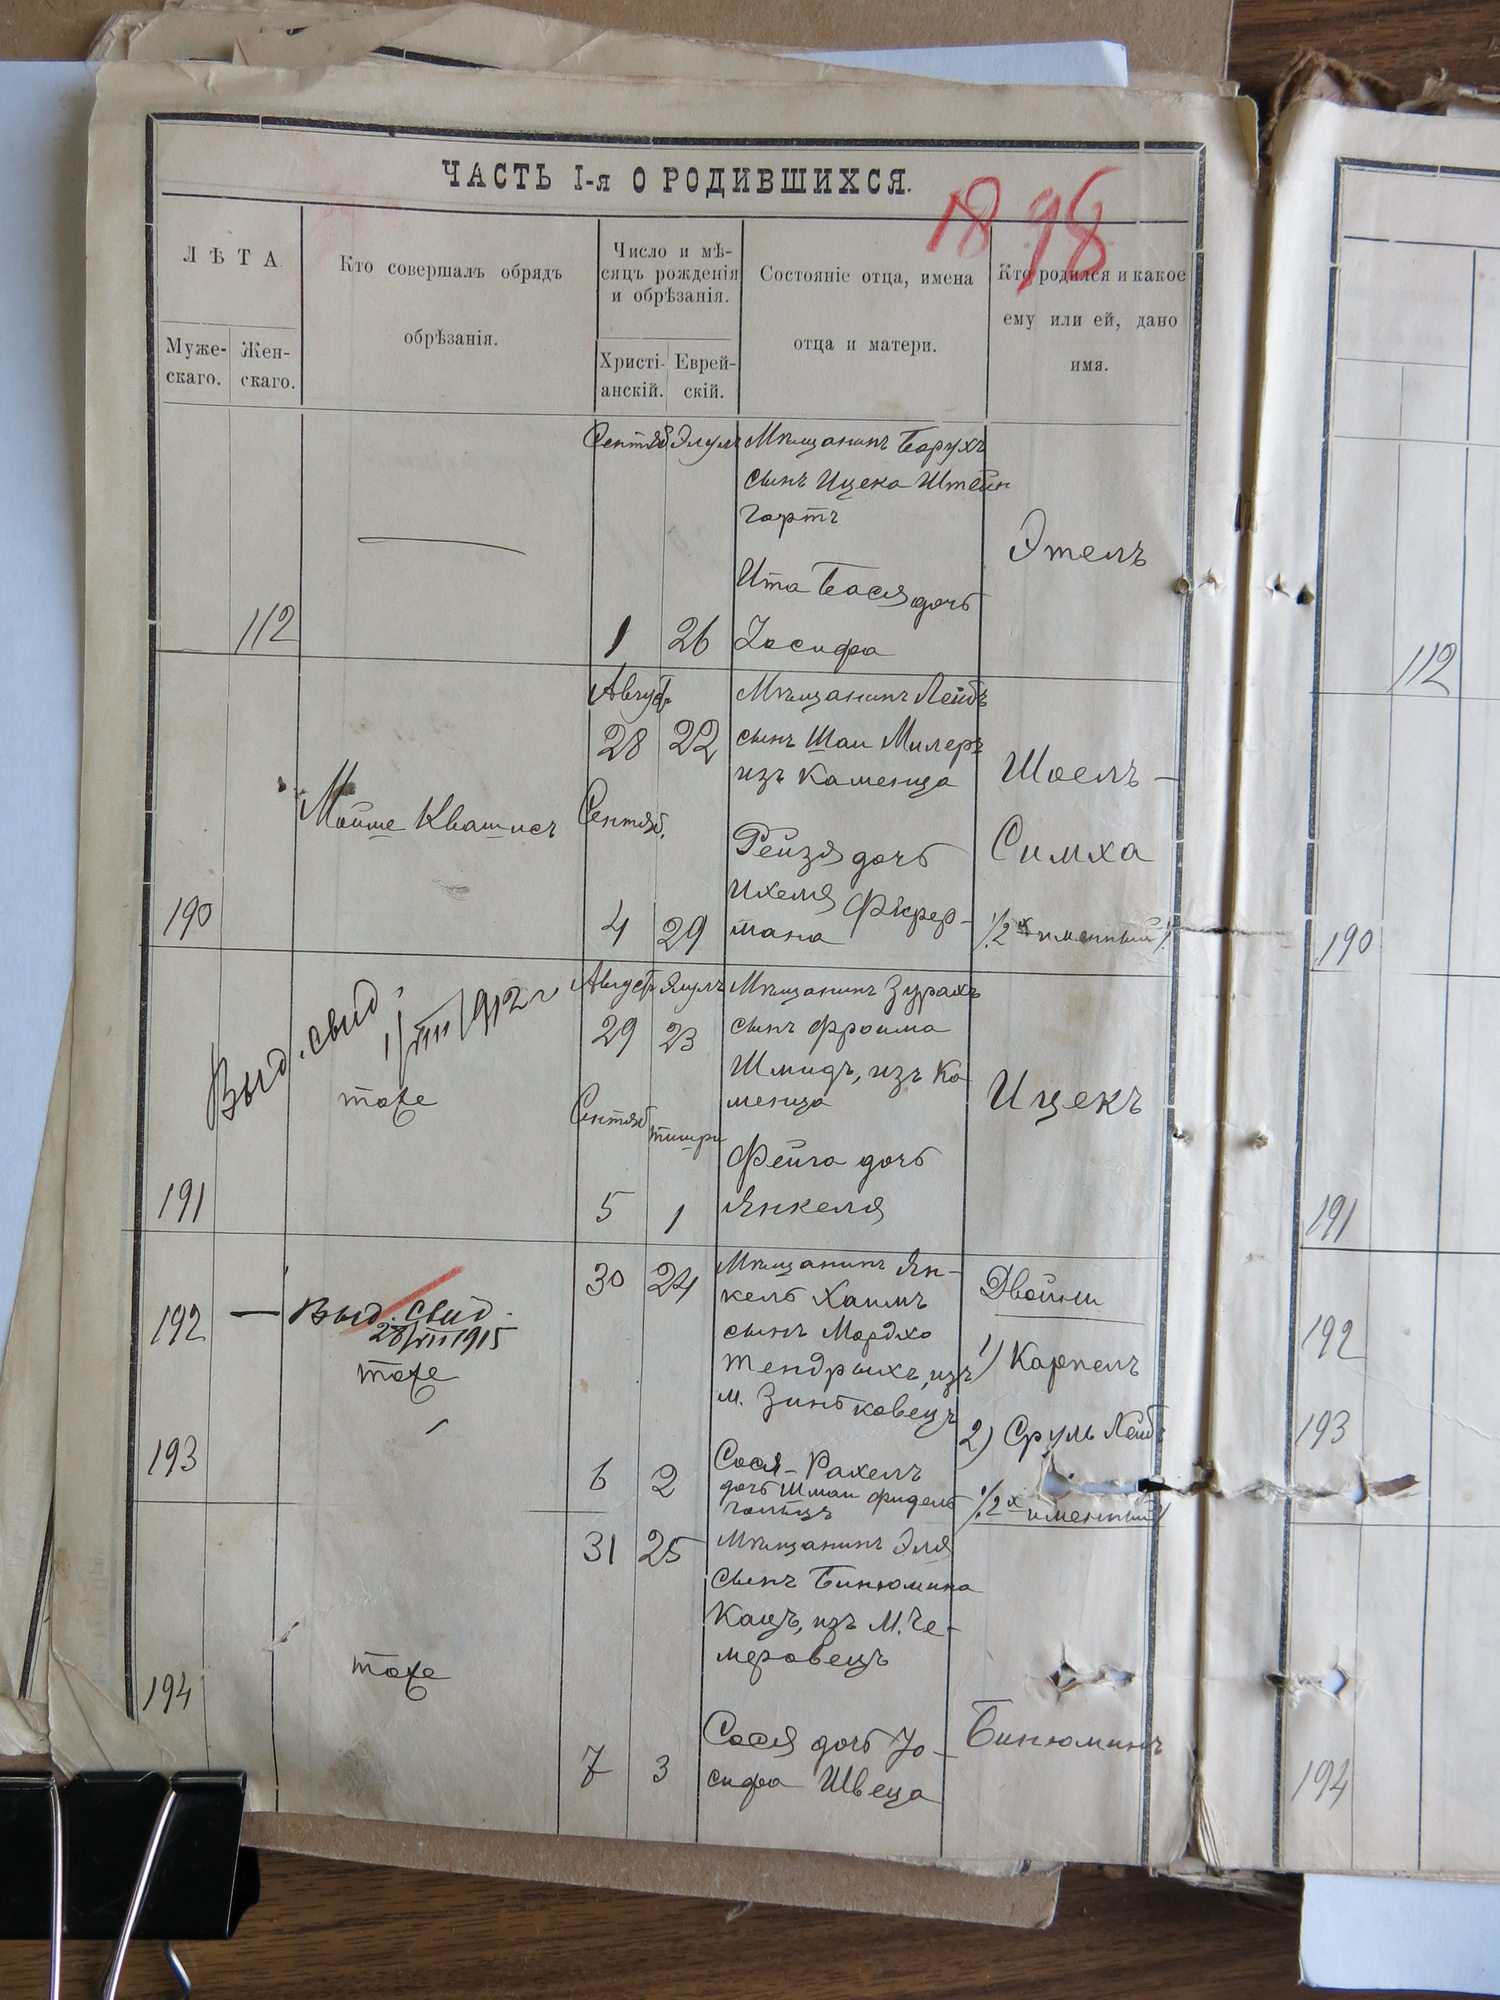 ЧАСТЬ I-я О РОДИВШИХСЯ.
1898
ЛѢТА
Муже-
скаго.
Жен-
скаго.
Кто совершалъ обрядъ
обрѣзанія.
Число и мѣ-
сяцъ рожденія
и обрѣзанія.
Христі-
анскій.
Еврей-
скій.
Состояніе отца, имена
отца и матери.
Кто родился и какое
ему или ей, дано
имя.
112
Сентяб Элулъ
1 26
Мѣщанинъ Барухъ
сынъ Ицека Штейн
гартъ
Ита Бася дочь
Іосифа
Этелъ
190
Мойше Квашисъ
Август
28 22
Сентяб.
4 29
Мѣщанинъ Лейбъ
сынъ Шаи Милеръ
изъ Каменца
Рейзя дочь
Ихеля
мана
Шоелъ-
Симха
/2х именный/
191
Выд. свид.
1/VIII 1912 г
тоже
Август Элулъ
29 23
Сентяб тишри
5 1
Мѣщанинъ Зурахъ
сынъ Фроима
Шмидъ, изъ Ка-
менца
Фейга дочь
Янкеля
Ицекъ
192
Выд. свид.
28/VII 1915
тоже
193
30 24
6 2
Мѣщанинъ Ян-
кель Хаимъ
сынъ Мордхо
Тендрыхъ, изъ
м. Зиньковецъ
Сося-Рахелъ
дочь Шмаи Фидель
гольцъ
Двойни
1) Карпелъ
2) Сруль Лейбъ
/2х именный/
194
тоже
31 25
7 3
Мѣщанинъ Эля
сынъ Бинюмина
Кацъ, изъ М. Че-
меровецъ
Сося дочь Іо-
сифа Швеца
Бинюминъ
112
190
191
192
193
194